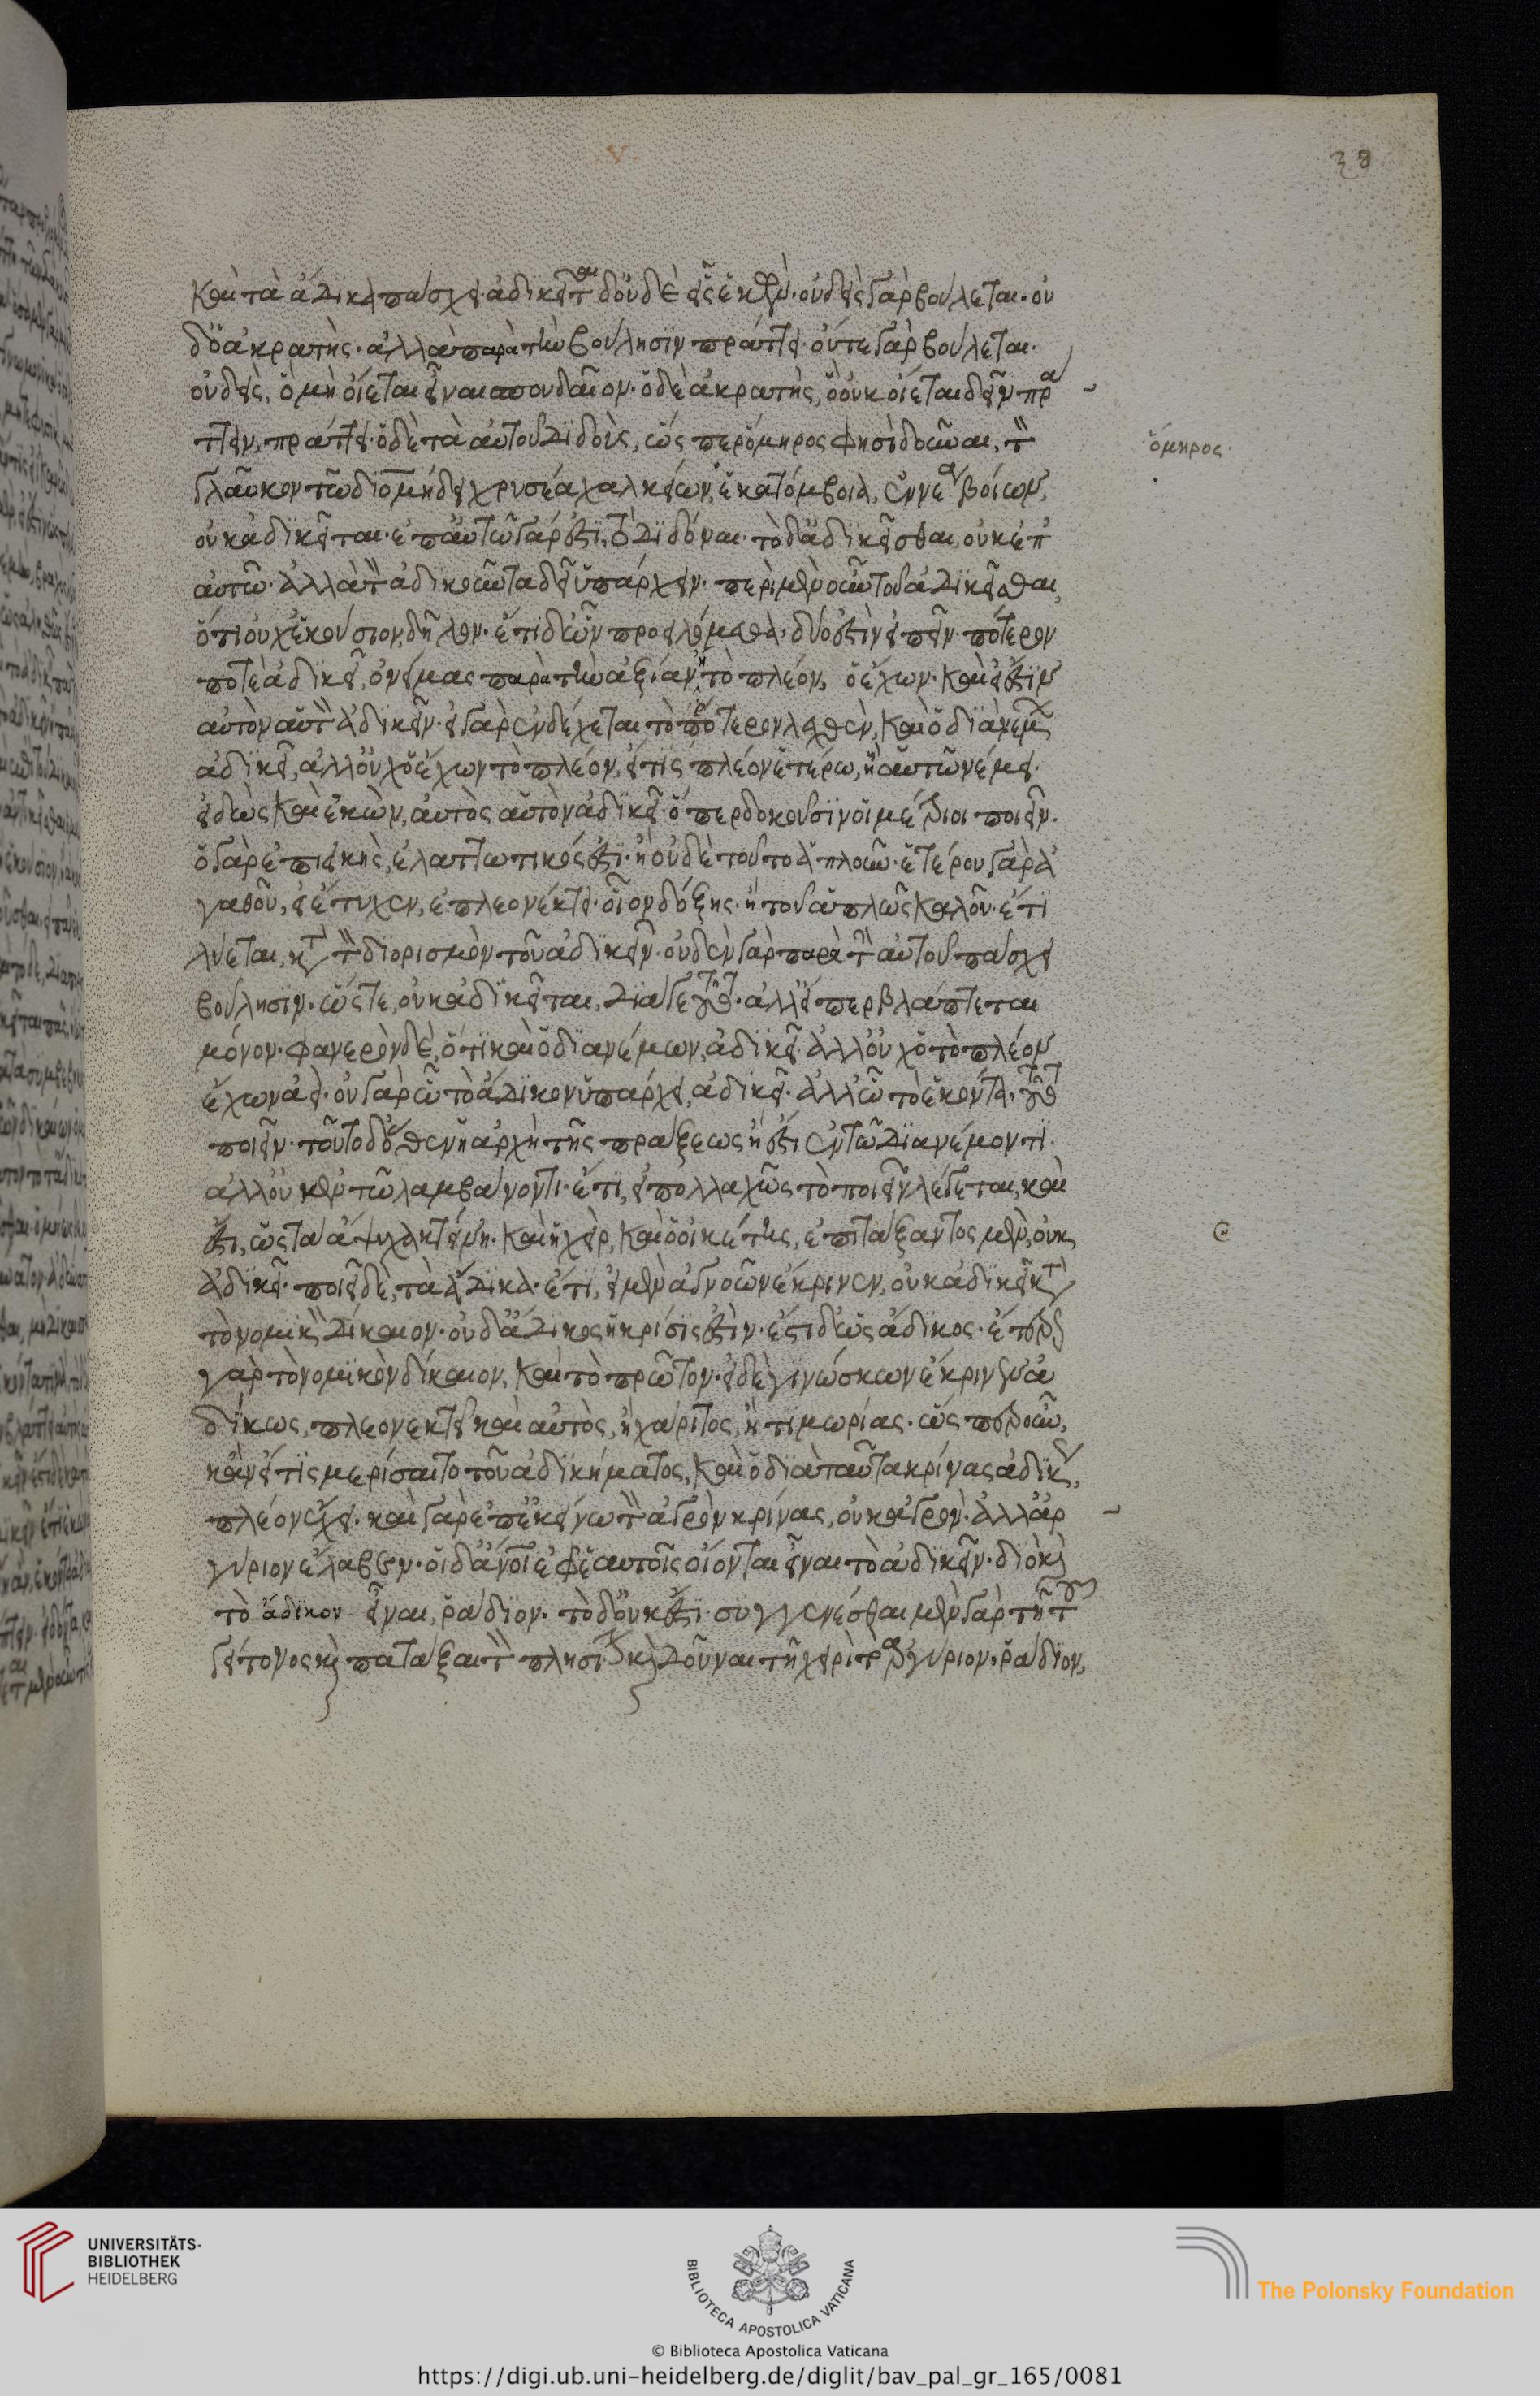 39
καὶ τὰ ἄδικα πάσχει ἀδικεῖται δ' οὐδεὶς ἑκών· οὐδεὶς γὰρ βούλεται· οὐ
δ' ὁ ἀκρατής· ἀλλὰ παρὰ τὴν βούλησιν πράττει· οὔτε γὰρ βούλεται
οὐδεὶς, ὃ μὴ οἴεται εἶναι σπουδαῖον· ὅ δὲ ἀκρατὴς, ὃ οὐκ οἴεται δεῖν πρά
ττειν, πράττει· ὁ δὲ τὰ αὑτοῦ διδοὺς, ὥς περ ὅμηρος φησὶ δοῦναι, τὸν
γλαῦκον τῶ διομήδει χρυσέα χαλκείων, ἑκατόμβοια, ἐννεαβοίων,
οὐκ ἀδικεῖται· ἐπ' αὐτῶ γάρ ἐστι, τὸ διδόναι· τὸ δ' ἀδικεῖσθαι, οὐκ ἐπ'
αὐτῶ· ἀλλὰ τὸν ἀδικοῦντα δεῖ ὑπάρχειν· περὶ μὲν οὖν τοῦ ἀδικεῖσθαι,
ὅτι οὐχ ἑκούσιον, δῆλον· ἔτι δ' ὧν προειλόμεθα· δύ' ἐστὶν εἰπεῖν· πότερον
ποτὲ ἀδικεῖ, ὁ νείμας παρὰ τὴν ἀξίαν τὸ πλέον, ἢ ὁ ἔχων· καὶ εἰ ἔστιν
αὐτὸν αὑτὸν ἀδικεῖν· εἰ γὰρ ἐνδέχεται τὸ πρότερον λεχθὲν, καὶ ὁ διανέμων
ἀδικεῖ, ἀλλ' οὐχ ὁ ἔχων τὸ πλέον, εἴ τις πλέον ἑτέρω, ἢ αὑτῶ νέμει
εἰδὼς καὶ ἑκὼν, αὐτὸς αὑτὸν ἀδικεῖ· ὅπερ δοκοῦσιν οἱ μέτριοι ποιεῖν·
ὁ γὰρ ἐπιεικὴς, ἐλαττωτικός ἐστι· ἢ οὐδὲ τοῦτο ἁπλοῦν· ἑτέρου γὰρ ἀ
γαθοῦ, εἰ ἔτυχεν, ἐπλεονέκτει· οἷον δόξης· ἢ τοῦ ἁπλῶς καλοῦ· ἔτι
λύεται, κατὰ τὸν διορισμὸν τοῦ ἀδικεῖν· οὐδὲν γὰρ παρὰ τὴν αὑτοῦ πάσχει
βούλησιν· ὥστε, οὐκ ἀδικεῖται, διά γε τοῦτο· ἀλλ' εἴπερ βλάπτεται
μόνον· φανερὸν δὲ, ὅτι καὶ ὁ διανέμων, ἀδικεῖ· ἀλλ' οὐχ ὁ τὸ πλέον
ἔχων ἀεί· οὐ γὰρ ὧ τὸ ἄδικον ὑπάρχει, ἀδικεῖ· ἀλλ' ὧ τὸ ἑκόντα· τοῦτο
ποιεῖν· τοῦτο δ' ὅθεν ἡ ἀρχὴ τῆς πράξεως ἥ ἐστι ἐν τῶ διανέμοντι·
ἀλλ' οὐκ ἐν τῶ λαμβάνοντι· ἔτι, ἐπεὶ πολλαχῶς τὸ ποιεῖν λέγεται, καὶ
ἔστι, ὡς τὰ ἄψυχα κτείνει· καὶ ἡ χεὶρ, καὶ ὁ οἰκέτης, ἐπιτάξαντος μὲν, οὐκ
ἀδικεῖ· ποιεῖ δὲ, τὰ ἄδικα· ἔτι, εἰ μὲν ἀγνοῶν ἔκρινεν, οὐκ ἀδικεῖ κατὰ
τὸ νομικὸν δίκαιον· οὐδ' ἄδικος ἡ κρίσις ἐστὶν· ἔστι δ' ὡς ἄδικος· ἕτερον
γὰρ τὸ νομικὸν δίκαιον, καὶ τὸ πρῶτον· εἰ δὲ γινώσκων ἔκρινεν ἀ
δίκως, πλεονεκτεῖ καὶ αὐτὸς, ἢ χάριτος, ἢ τιμωρίας· ὥς περ οὖν,
κἂν εἴ τις μερίσαιτο τοῦ ἀδικήματος, καὶ ὁ διὰ ταῦτα κρίνας ἀδίκως,
πλέον ἔχει· καὶ γὰρ ἐπ' ἐκείνω τὸν ἀγρὸν κρίνας, οὐκ ἀγρὸν· ἀλλ' ἀρ
γύριον ἔλαβεν· οἱ δ' ἄνθρωποι ἐφ' ἑαυτοῖς οἴονται εἶναι τὸ ἀδικεῖν· διὸ καὶ
τὸ ἄδικον εἶναι, ῥάδιον· τὸ δ' οὐκ ἔστι· συγγενέσθαι μὲν γὰρ τῆ τοῦ
γείτονος καὶ πατάξαι τὸν πλησίον καὶ δοῦναι τῆ χειρὶ τὸ ἀργύριον, ῥάδιον,
ὅμηρος·
UNIVERSITÄTS-
BIBLIOTHEK
HEIDELBERG
BIBLIOTECA APOSTOLICA VATICANA
The Polonsky Foundation
© Biblioteca Apostolica Vaticana
https://digi.ub.uni-heidelberg.de/diglit/bav_pal_gr_165/0081